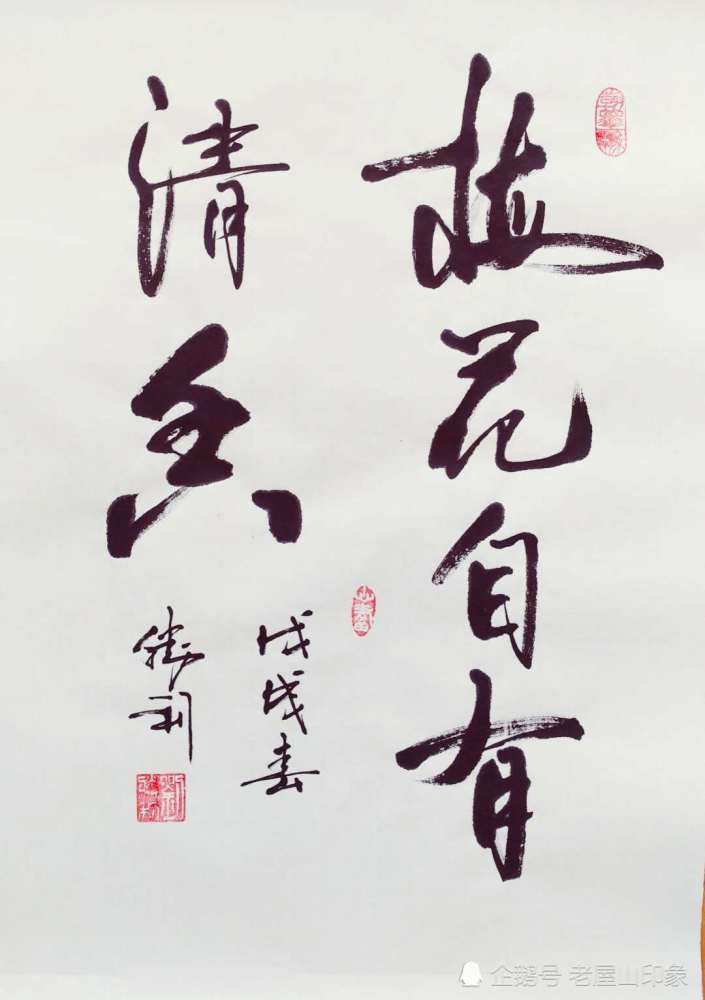 梅花自有
清香
戊戌春
勝利
企鹅号 老屋山印象